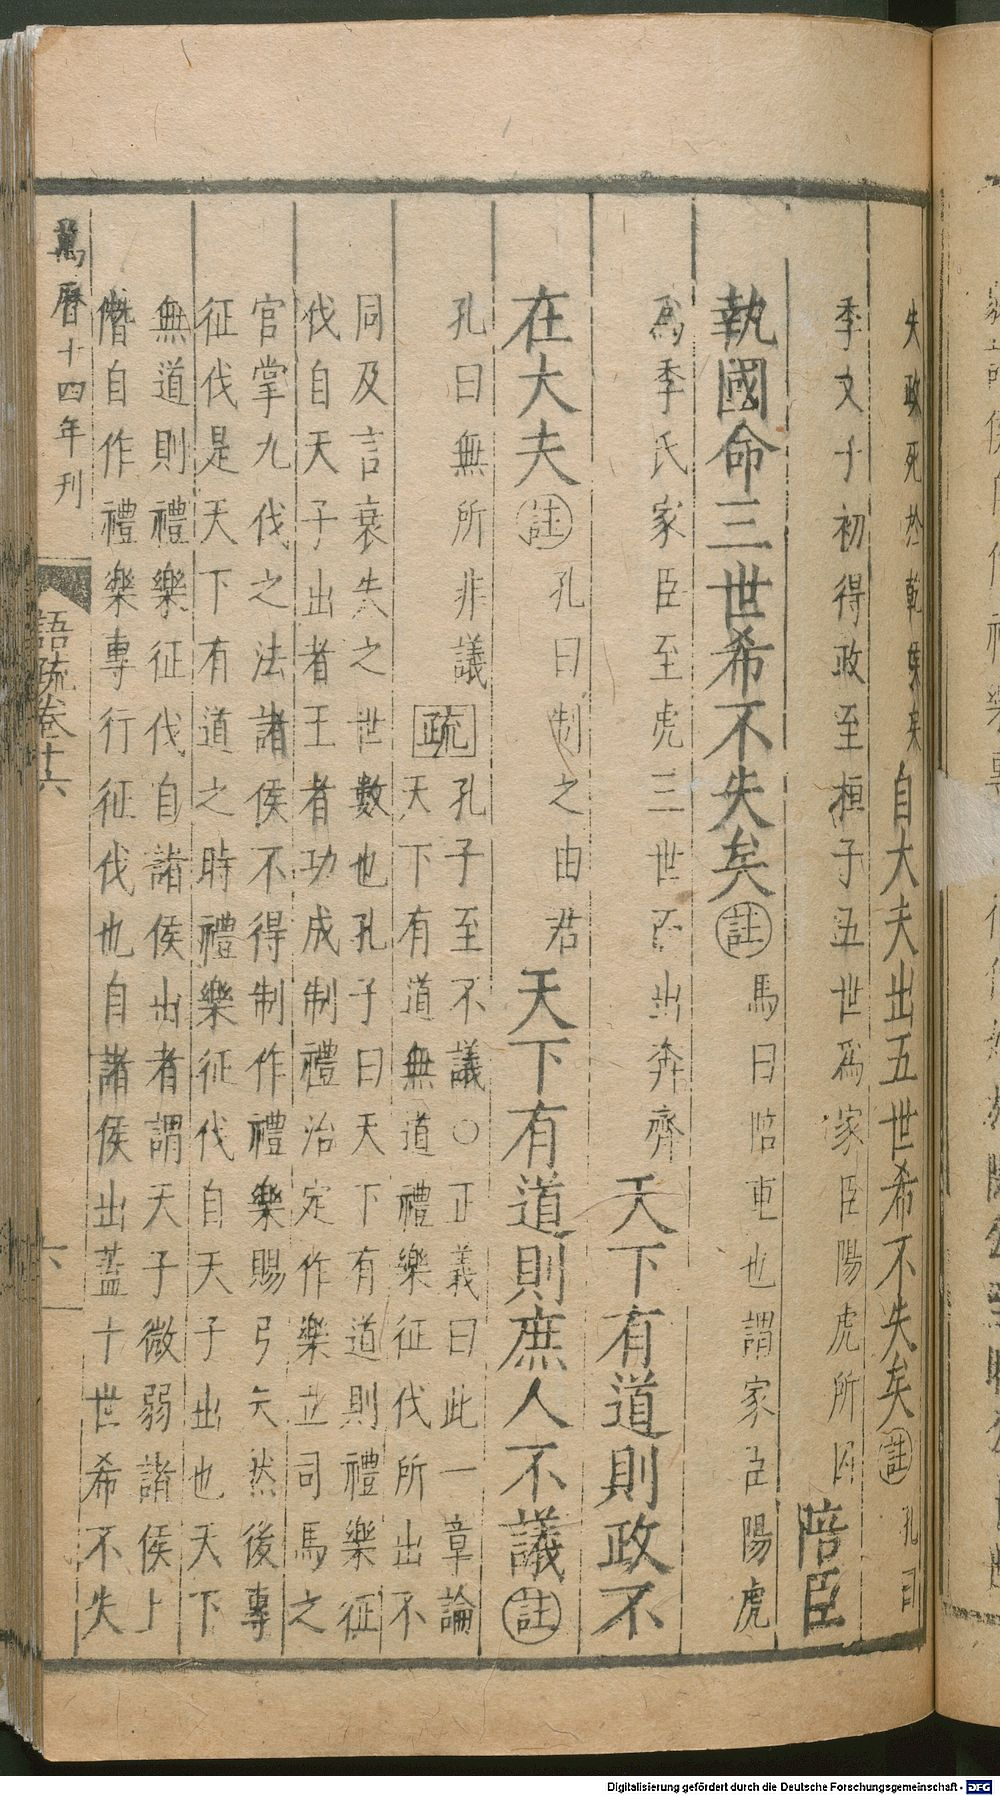 失政死於乾侯矣自大夫出五世希不失矣註孔曰
季文子初得政至桓子五世爲家臣陽虎所囚陪臣
執國命三世希不失矣註馬曰陪重也謂家臣陽虎
爲季氏家臣至虎三世而出奔齊天下有道則政不
在大夫註孔曰制之由君天下有道則庶人不議註
孔曰無所非議疏孔子至不議○正義曰此一章論
天下有道無道禮樂征伐所出不
同及言衰失之世數也孔子曰天下有道則禮樂征
伐自天子出者王者功成制禮治定作樂立司馬之
官掌九伐之法諸侯不得制作禮樂賜弓矢然後專
征伐是天下有道之時禮樂征伐自天子出也天下
無道則禮樂征伐自諸侯出者謂天子微弱諸侯上
僭自作禮樂專行征伐也自諸侯出蓋十世希不失
萬曆十四年刊
語疏卷十六
六
Digitalisierung gefördert durch die Deutsche Forschungsgemeinschaft - DFG